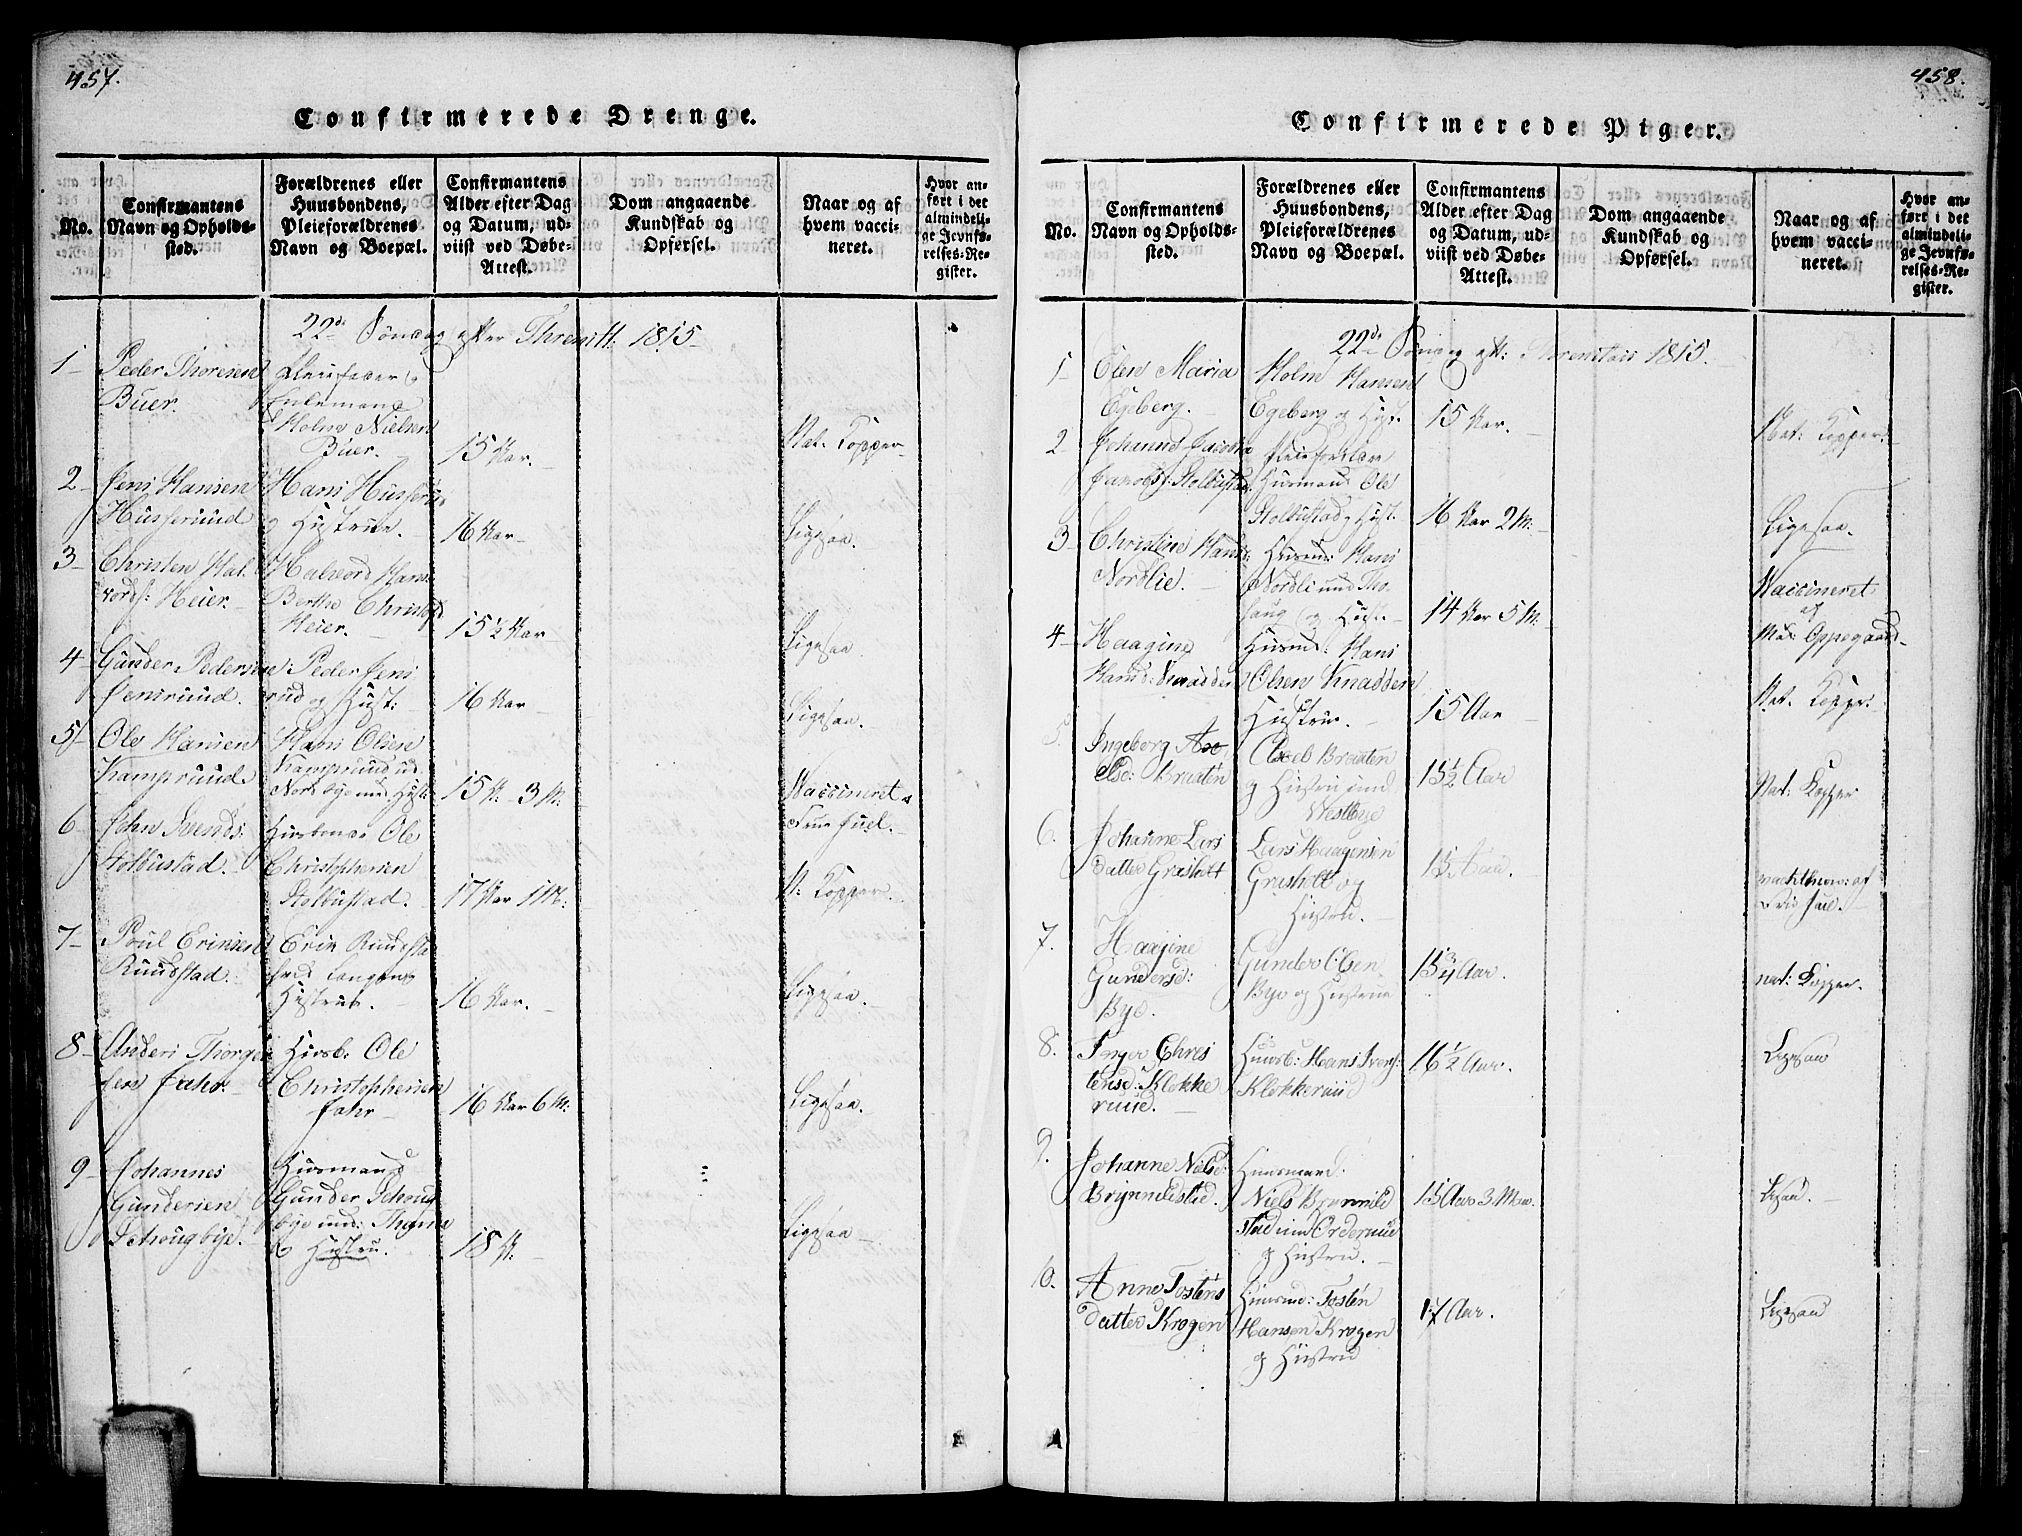 457.
Confirmerede Drenge.
No.
Confirmantens Navn og Opholdssted.
Forældrenes eller Huusbondens, Pleieforældrenes Navn og Boepæl.
Confirmantens Alder efter Dag og Datum, udviist ved Døbe-Attest.
Dom angaaende Kundskab og Opførsel.
Naar og af hvem vaccineret.
Hvor anført i det almindelige Jevnførelses-Register.
22de Søndag efter 1815
1 Peder Thoresen
Buer.
Pleiefader
Enkemand
Holm Nielsen
Buer.
15 Aar.
Nat. Kopper
2 Jens Hansen
Husserud
Hans Husserud
og Hustrue.
16 Aar
Ligesaa.
3 Christen Halvords: Heier
Halvord Hans:
Berthe Christofd
Heier.
15½ Aar
Ligesaa
4 Gunder Pedersen
Jensruud.
Peder Jensrud og Hust:
16 Aar
Ligesaa.
5 Ole Hansen
Kampruud
Hans Olsen
Kampruud
Nordbye Hust:
15 A: 3 M:
Vaccineret
Juel.
6 John Svends:
Stolbustad.
Husbonde Ole
Christophersen
Stolbustad.
17 Aar 1 M:
N: Kopper
7 Poul Ericksen
Ruudstad.
Erik Ruudsta
Hustrue.
16 Aar.
Ligesaa.
8 Anders Thorgersen Jahr.
Husb: Ole
Christophersen
Jahr
16 Aar 6 M:
Ligesaa.
9 Johannes
Gundersen
Schougbye.
Husmand
Gunder Schougbye und:
& Hustru.
18 A:
Ligesaa
458.
Confirmerede Piger.
No.
Confirmantens Navn og Opholdssted.
Forældrenes eller Huusbondens, Pleieforældrenes Navn og Boepæl.
Confirmantens Alder efter Dag og Datum, udviist ved Døbe-Attest.
Dom angaaende Kundskab og Opførsel.
Naar og af hvem vaccineret.
Hvor anført i det almindelige Jevnførelses-Register.
22de Søndag eft: 1815.
1 Elen Maria
Egeberg.
Holm Hansen
Egeberg og Hust.
15 Aar.
Nat: Kopper.
2 Johanne
Jacobs: Stolbustad
Pleieforældre
Husmand Ole
Stolbustad og Hust.
16 Aar 2 M.
Ligesaa.
3 Christine Hans:
Nordlie.
Husmd: Hans
Nordli und
og Hust:
14 Aar 5 M:
Vaccineret
af
Oppegaard
4 Haagine
Hansd: Knadden
Husmd: Hans
Olsen Knadden
Hustrue.
15 Aar
Nat. Kopper:
5. Ingeborg Axelsd: Braaten
Axel Braaten
og Hustru und
Westbye
15½ Aar
Nat: Kopper
6. Johanne Lars
datter Græsholt
Lars Haagensen
Græsholt og
Hustru.
15 Aar.
af
Juel.
7. Haagine
Gundersd:
Bye.
Gunder Olsen
Bye og Hustrue
15¾ Aar.
nat: Kopper.
8. Inger Chrestensd: Klokkeruud.
Huusb: Hans Ivers:
Klokkeruud
16½ Aar.
Ligesaa
9. Johanne Nielsd:
Brynnildstad.
Huusmand.
Niels Brynnild
stad und Orderuud
og Hustru.
15 Aar 3 M.
Ligesaa.
10. Anne Tostens
datter Krogen
Huusmd: Tosten
Hansen Krogen
og Hustru
17 Aar.
Ligesaa